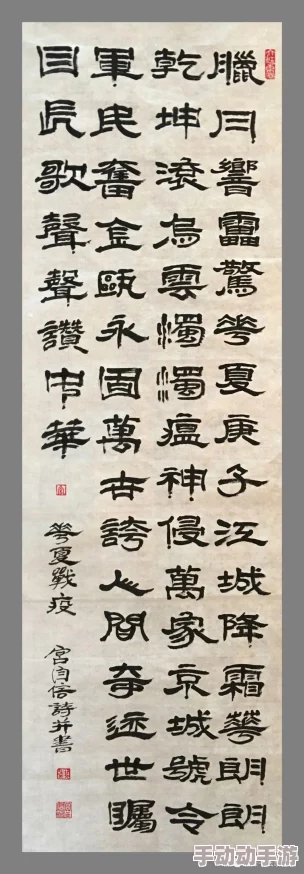 臘月響靁驚華夏庚子江城降霜華朗朗
乾坤滾烏雲濁濁瘟神侵萬家京城號令
軍民奮金甌永固萬古誇人間奇迹世矚
目民歌聲聲讚中華
華夏戰疫
宮自信詩并書
手动动手游